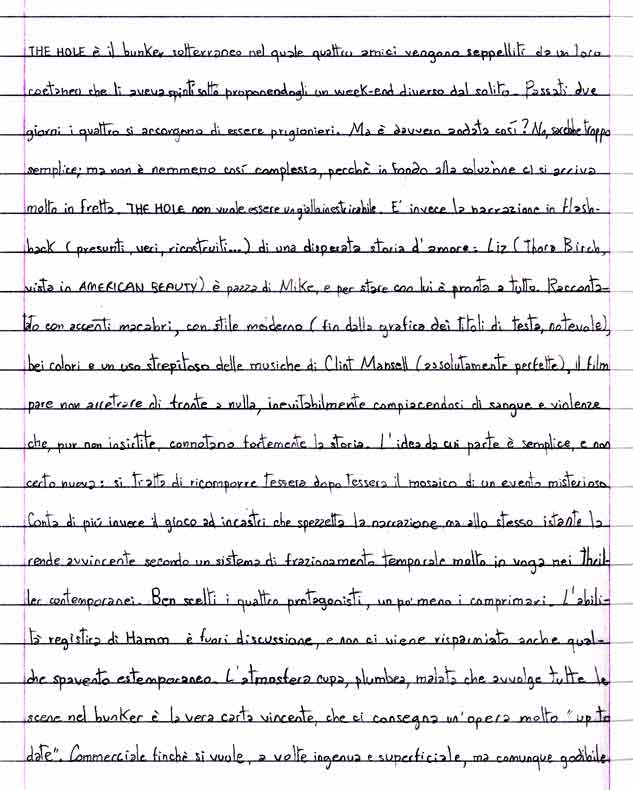 THE HOLE è il bunker sotterraneo nel quale quattro amici vengono seppelliti da un loro
coetaneo che li aveva spinti sotto proponendogli un week-end diverso dal solito. Passati due
giorni i quattro si accorgono di essere prigionieri. Ma è davvero andata così? No, sarebbe troppo
semplice; ma non è nemmeno così complesso, perchè in fondo alla soluzione ci si arriva
molto in fretta. THE HOLE non vuole essere un giallo inestricabile. E' invece la narrazione in flash-
back (presunti, veri, ricostruiti...) di una disperata storia d'amore: Liz (Thora Birch,
vista in AMERICAN BEAUTY) è pazza di Mike, e per stare con lui è pronta a tutto. Racconta-
to con accenti macabri, con stile moderno (fin dalla grafica dei titoli di testa, notevole),
bei colori e un uso strepitoso delle musiche di Clint Mansell (assolutamente perfette), il film
pare non arretrare di fronte a nulla, inevitabilmente compiacendosi di sangue e violenze
che, pur non insistite, connotano fortemente la storia. L'idea da cui parte è semplice, e non
certo nuova: si tratta di ricomporre tessera dopo tessera il mosaico di un evento misterioso.
Conta di più invece il gioco ad incastri che spezzetta la narrazione ma allo stesso istante la
rende avvincente secondo un sistema di frazionamento temporale molto in voga nei thril-
ler contemporanei. Ben scelti i quattro protagonisti, un po' meno i comprimari. L'abili-
tà registica di Hamm è fuori discussione, e non ci viene risparmiato anche qual-
che spavento estemporaneo. L'atmosfera cupa, plumbea, malata che avvolge tutte le
scene nel bunker è la vera carta vincente, che ci consegna un'opera molto "up to
date". Commerciale finchè si vuole, a volte ingenua e superficiale, ma comunque godibile.